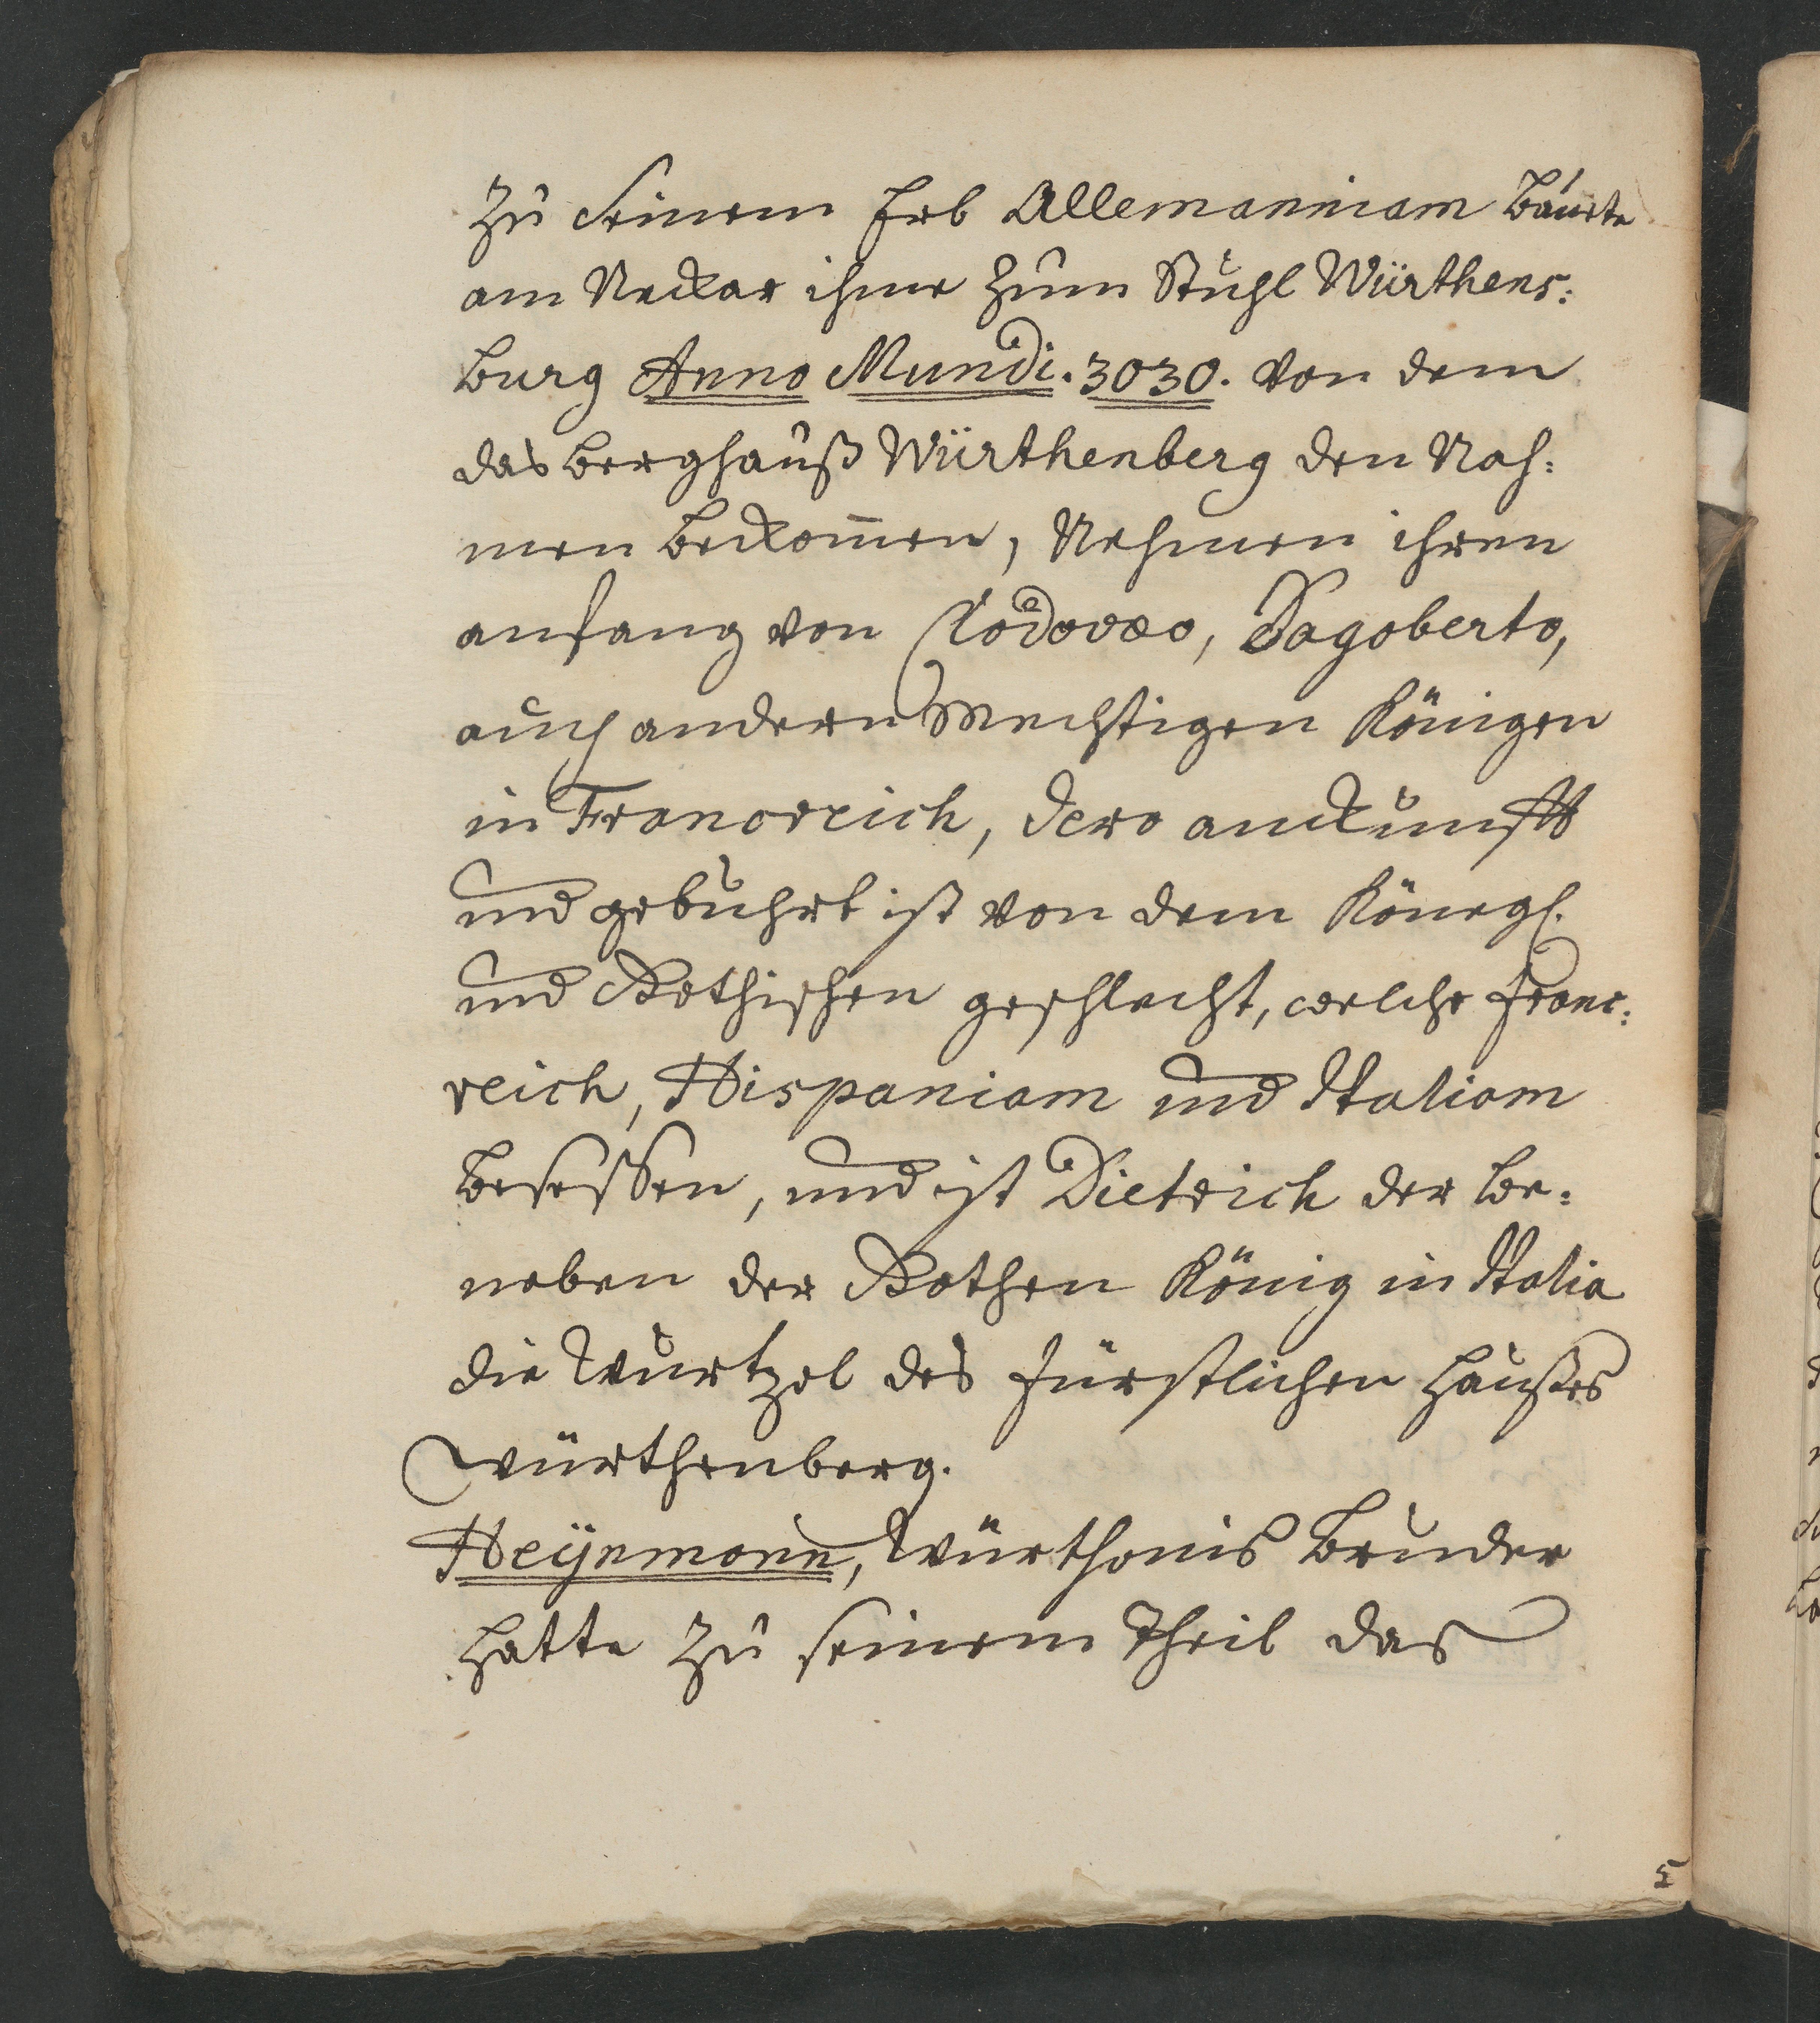 Zu Seinem Erb Allemanniam bauete
am Neckar ihme zum Stuhl Würthens:
burg Anno Mundi. 3030. von dem
das berghauß Würthenberg den Nah:
men bekom̄en, Nehmen ihren
anfang von Clodovæo, Dagoberto,
auch andern Mechtigen Königen
in Francreich, dero ankunfft
und gebuhrt ist von dem Königl.
und Gothischen geschlecht, welche Franc:
reich, Hispaniam und Italiam
besessen, und ist Dietrich der be:
neben der Gothen König in Italia
die Wurtzel des Fürstlichen Haußes
Würthenberg.
Heÿnmann, Würthonis Bruder
hatte zu seinem Theil das
5